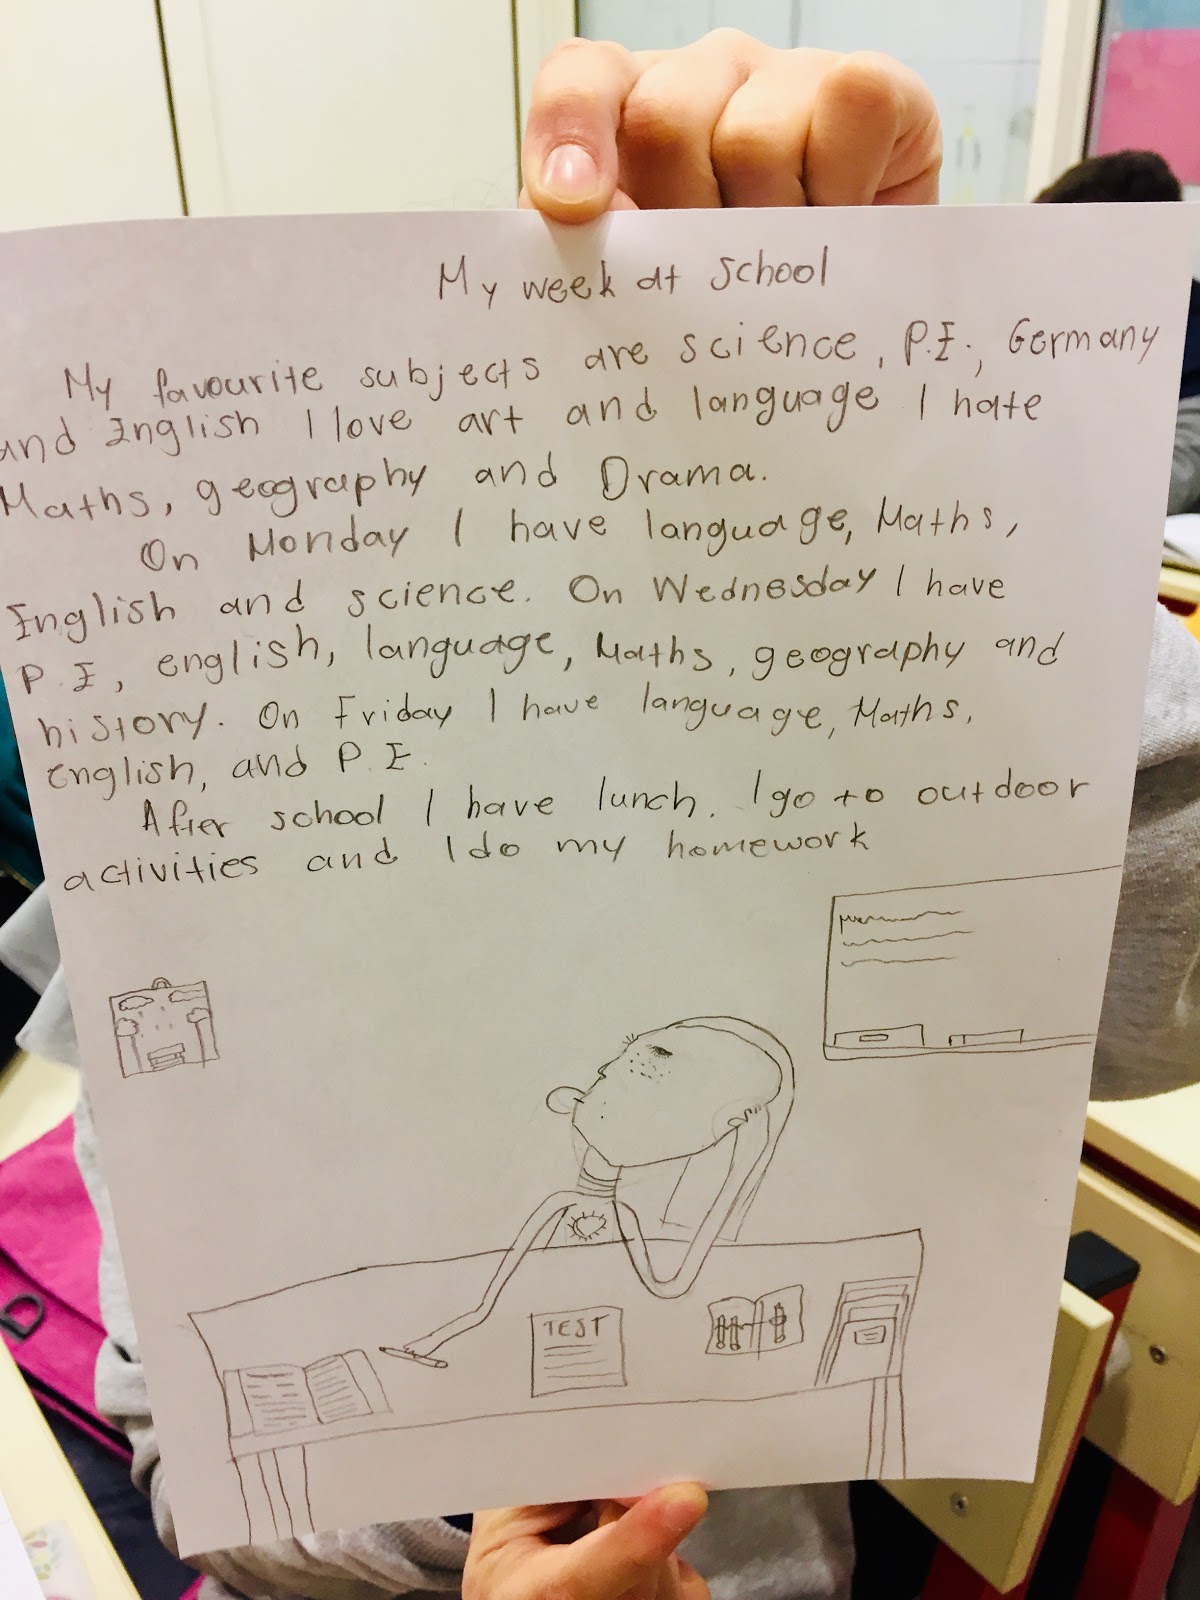 My week at school
My favourite subjects are science, P.E., Germany
and English I love art and language I hate
Maths, geography and Drama.
On Monday I have language, Maths,
English and science. On Wednesday I have
P.E, english, language, Maths, geography and
history. On Friday I have language, Maths,
english, and P.E.
After school I have lunch. I go to outdoor
activities and I do my homework
TEST